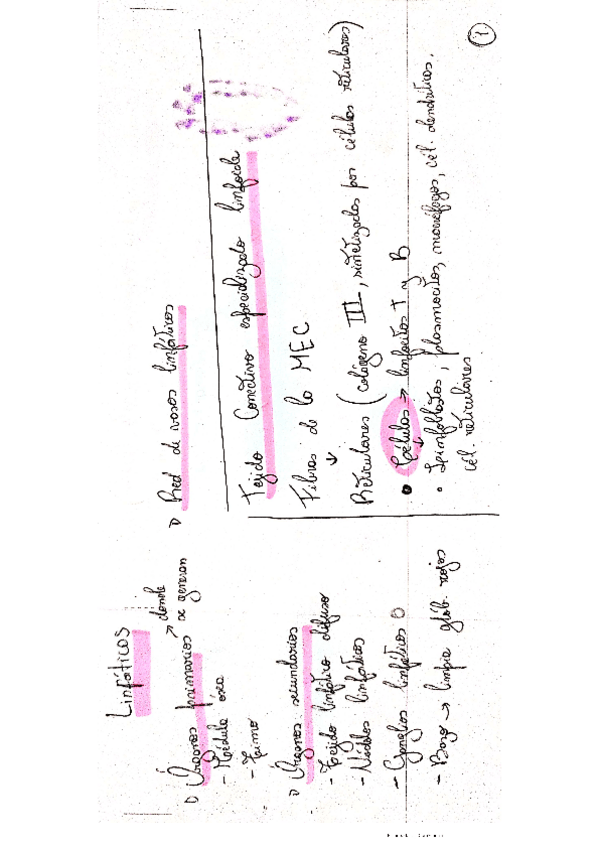 Linfáticos
▷ Órganos primarios → donde se generan
- Médula ósea
- Timo
▷ Órganos secundarios
- Tejido linfático difuso
- Nódulos linfáticos
- Ganglios linfáticos
- Bazo → limpia glób. rojos
▷ Red de vasos linfáticos
Tejido Conectivo especializado linfoide
Fibras de la MEC
↓
Reticulares (colágeno III, sintetizadas por células reticulares)
• Células → linfocitos T y B
↓
• Linfoblastos, plasmocitos, macrófagos, cél. dendríticas,
cél. reticulares
1